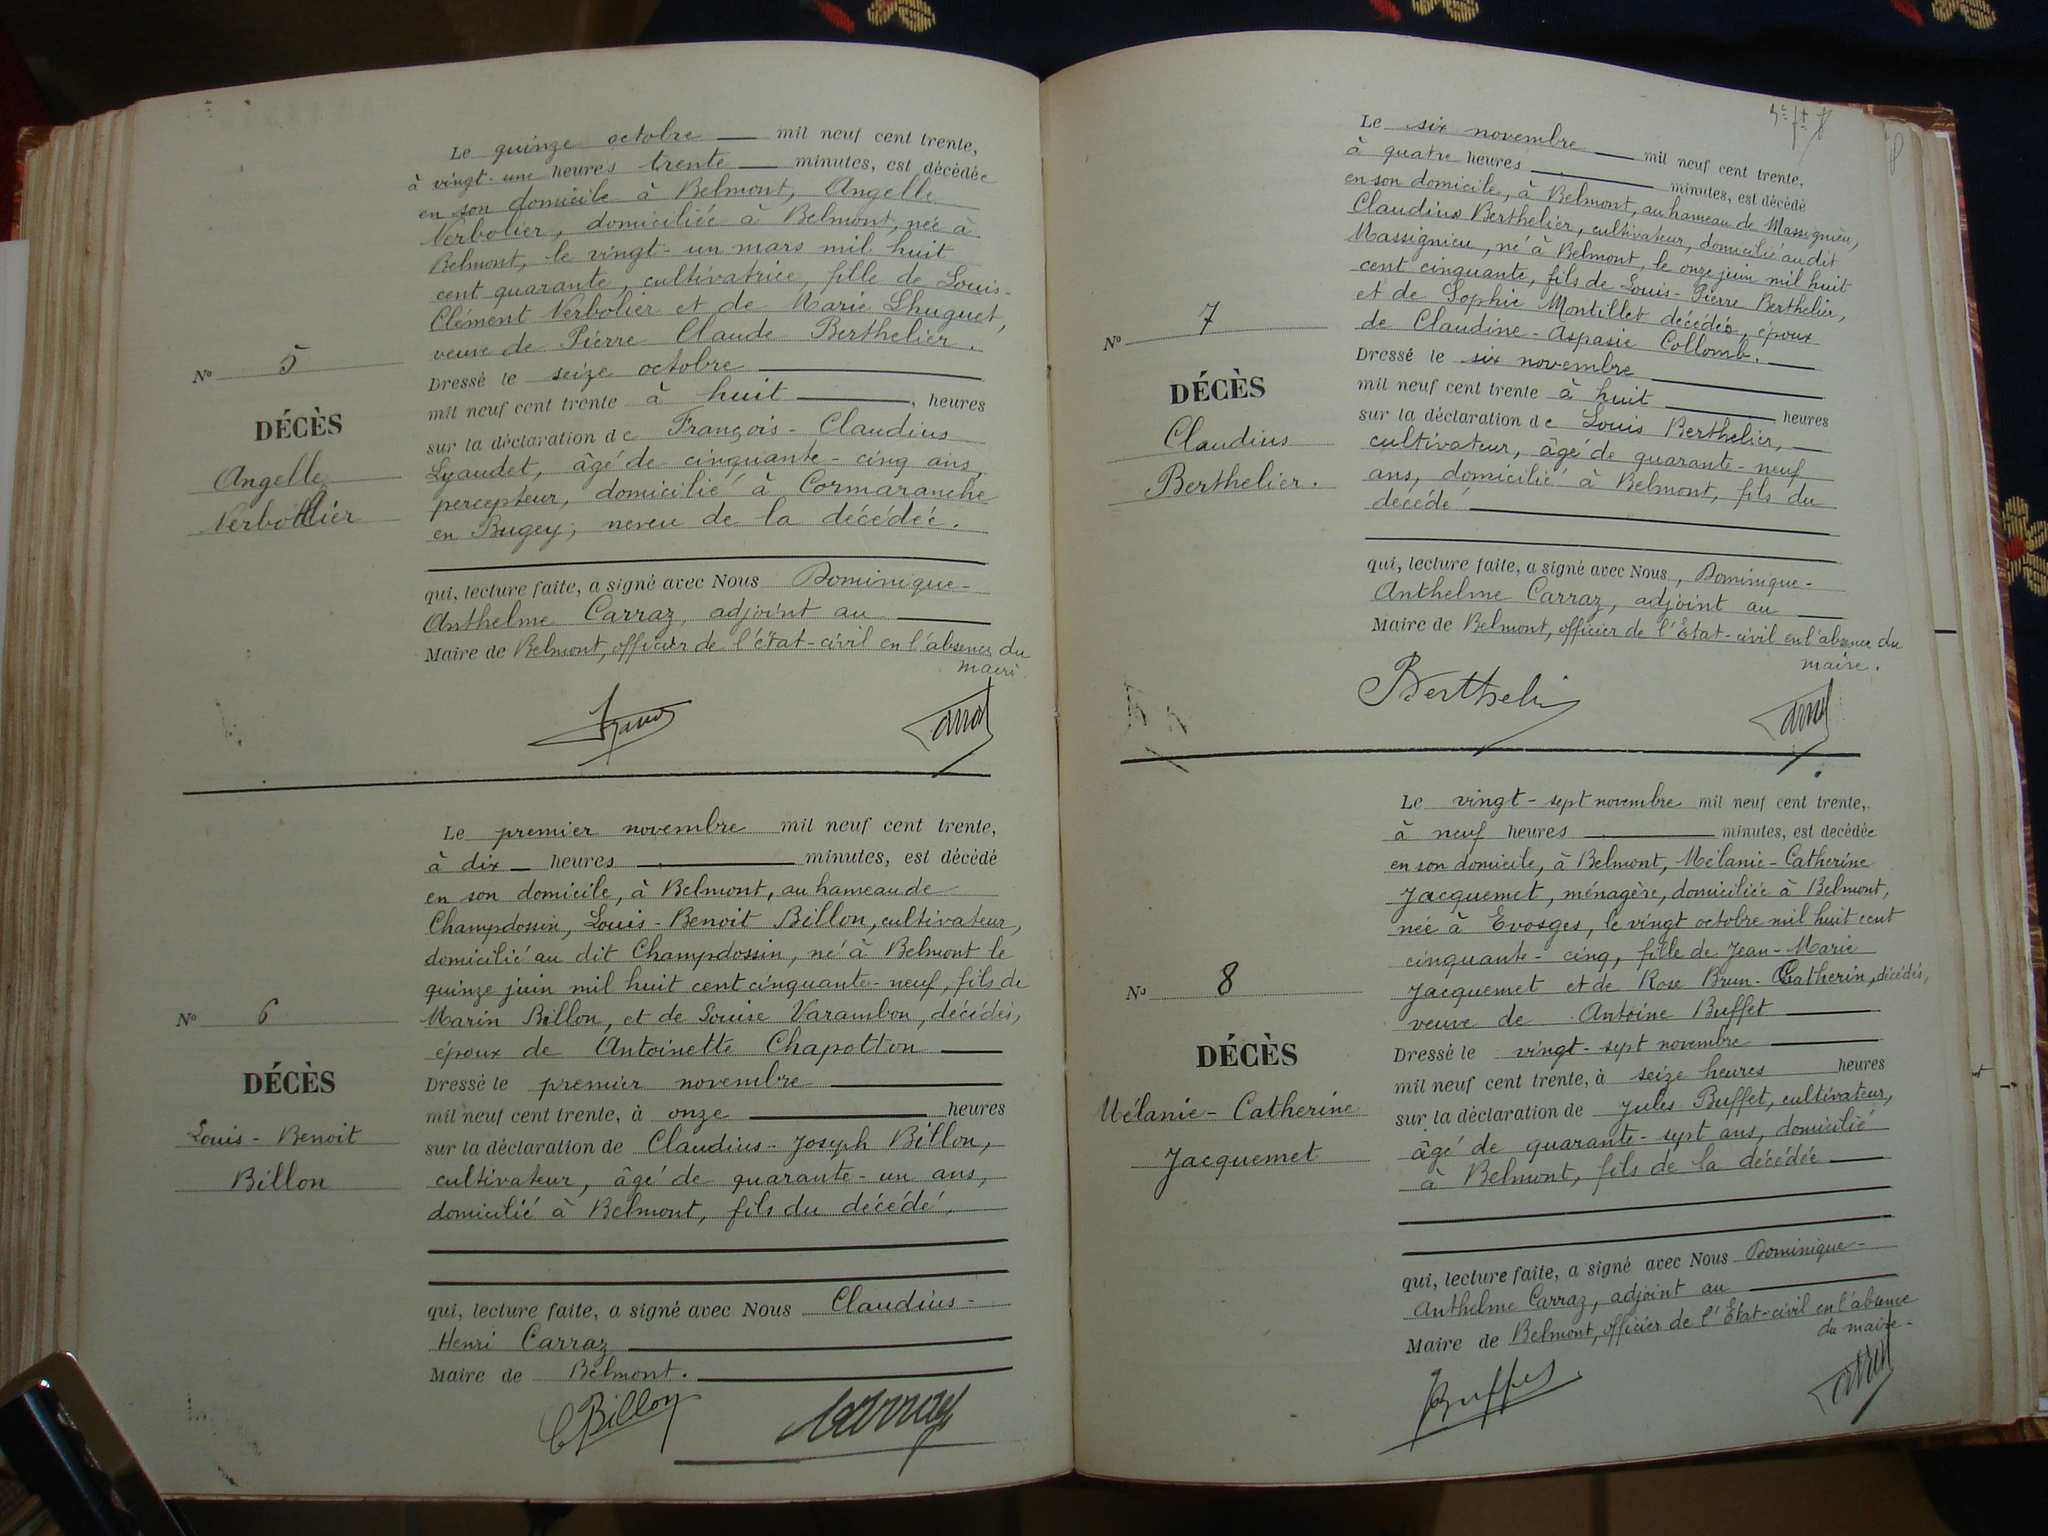 Le quinze octobre mil neuf cent trente,
à vingt-une heures trente minutes, est décédée
en son domicile à Belmont, Angelle
Verbolier, domiciliée à Belmont, née à
Belmont, le vingt-un mars mil huit
cent quarante, cultivatrice, fille de Louis-
Clément Verbolier et de Marie Lhuguet,
veuve de Pierre Claude Berthelier.
Dressé le seize octobre
mil neuf cent trente à huit, heures
sur la déclaration de François-Claudius
Lyaudet, âgé de cinquante-cinq ans,
percepteur, domicilié à Cormaranche
en Bugey, neveu de la décédée.
N° 5
DÉCÈS
Angelle
Verbollier
qui, lecture faite, a signé avec Nous Dominique-
Anthelme Carraz, adjoint au
Maire de Belmont, officier de l'état-civil en l'absence du
maire
Le premier novembre mil neuf cent trente,
à dix heures minutes, est décédé
en son domicile, à Belmont, au hameau de
Champdossin, Louis-Benoit Billon, cultivateur,
domicilié au dit Champdossin, né à Belmont le
quinze juin mil huit cent cinquante-neuf, fils de
Marin Billon, et de Louise Varambon, décédés,
époux de Antoinette Chapotton
Dressé le premier novembre
mil neuf cent trente, à onze heures
sur la déclaration de Claudius-Joseph Billon,
cultivateur, âgé de quarante-un ans,
domicilié à Belmont, fils du décédé,
N° 6
DÉCÈS
Louis-Benoit
Billon
qui, lecture faite, a signé avec Nous Claudius-
Henri Carraz
Maire de Belmont.
C Billon
Carraz
Le six novembre mil neuf cent trente,
à quatre heures minutes, est décédé
en son domicile, à Belmont, au hameau de Massignieu,
Claudius Berthelier, cultivateur, domicilié au dit
Massignieu, né à Belmont, le onze juin mil huit
cent cinquante, fils de Louis-Pierre Berthelier,
et de Sophie Montillet décédés, époux
de Claudine-Aspasie Collomb.
Dressé le six novembre
mil neuf cent trente à huit heures
sur la déclaration de Louis Berthelier,
cultivateur, âgé de quarante-neuf
ans, domicilié à Belmont, fils du
décédé
N° 7
DÉCÈS
Claudius
Berthelier.
qui, lecture faite, a signé avec Nous, Dominique-
Anthelme Carraz, adjoint au
Maire de Belmont, officier de l'Etat-civil en l'absence du
maire.
Berthelier
Le vingt-sept novembre mil neuf cent trente,
à neuf heures minutes, est décédée
en son domicile, à Belmont, Mélanie-Catherine
Jacquemet, ménagère, domiciliée à Belmont,
née à Evosges, le vingt octobre mil huit cent
cinquante-cinq, fille de Jean-Marie
Jacquemet et de Rose Brun-Catherin, décédés,
veuve de Antoine Buffet
Dressé le vingt-sept novembre
mil neuf cent trente, à seize heures heures
sur la déclaration de Jules Buffet, cultivateur,
âgé de quarante-sept ans, domicilié
à Belmont, fils de la décédée
N° 8
DÉCÈS
Mélanie-Catherine
Jacquemet
qui, lecture faite, a signé avec Nous Dominique-
Anthelme Carraz, adjoint au
Maire de Belmont, officier de l'Etat-civil en l'absence
du maire.
Buffet